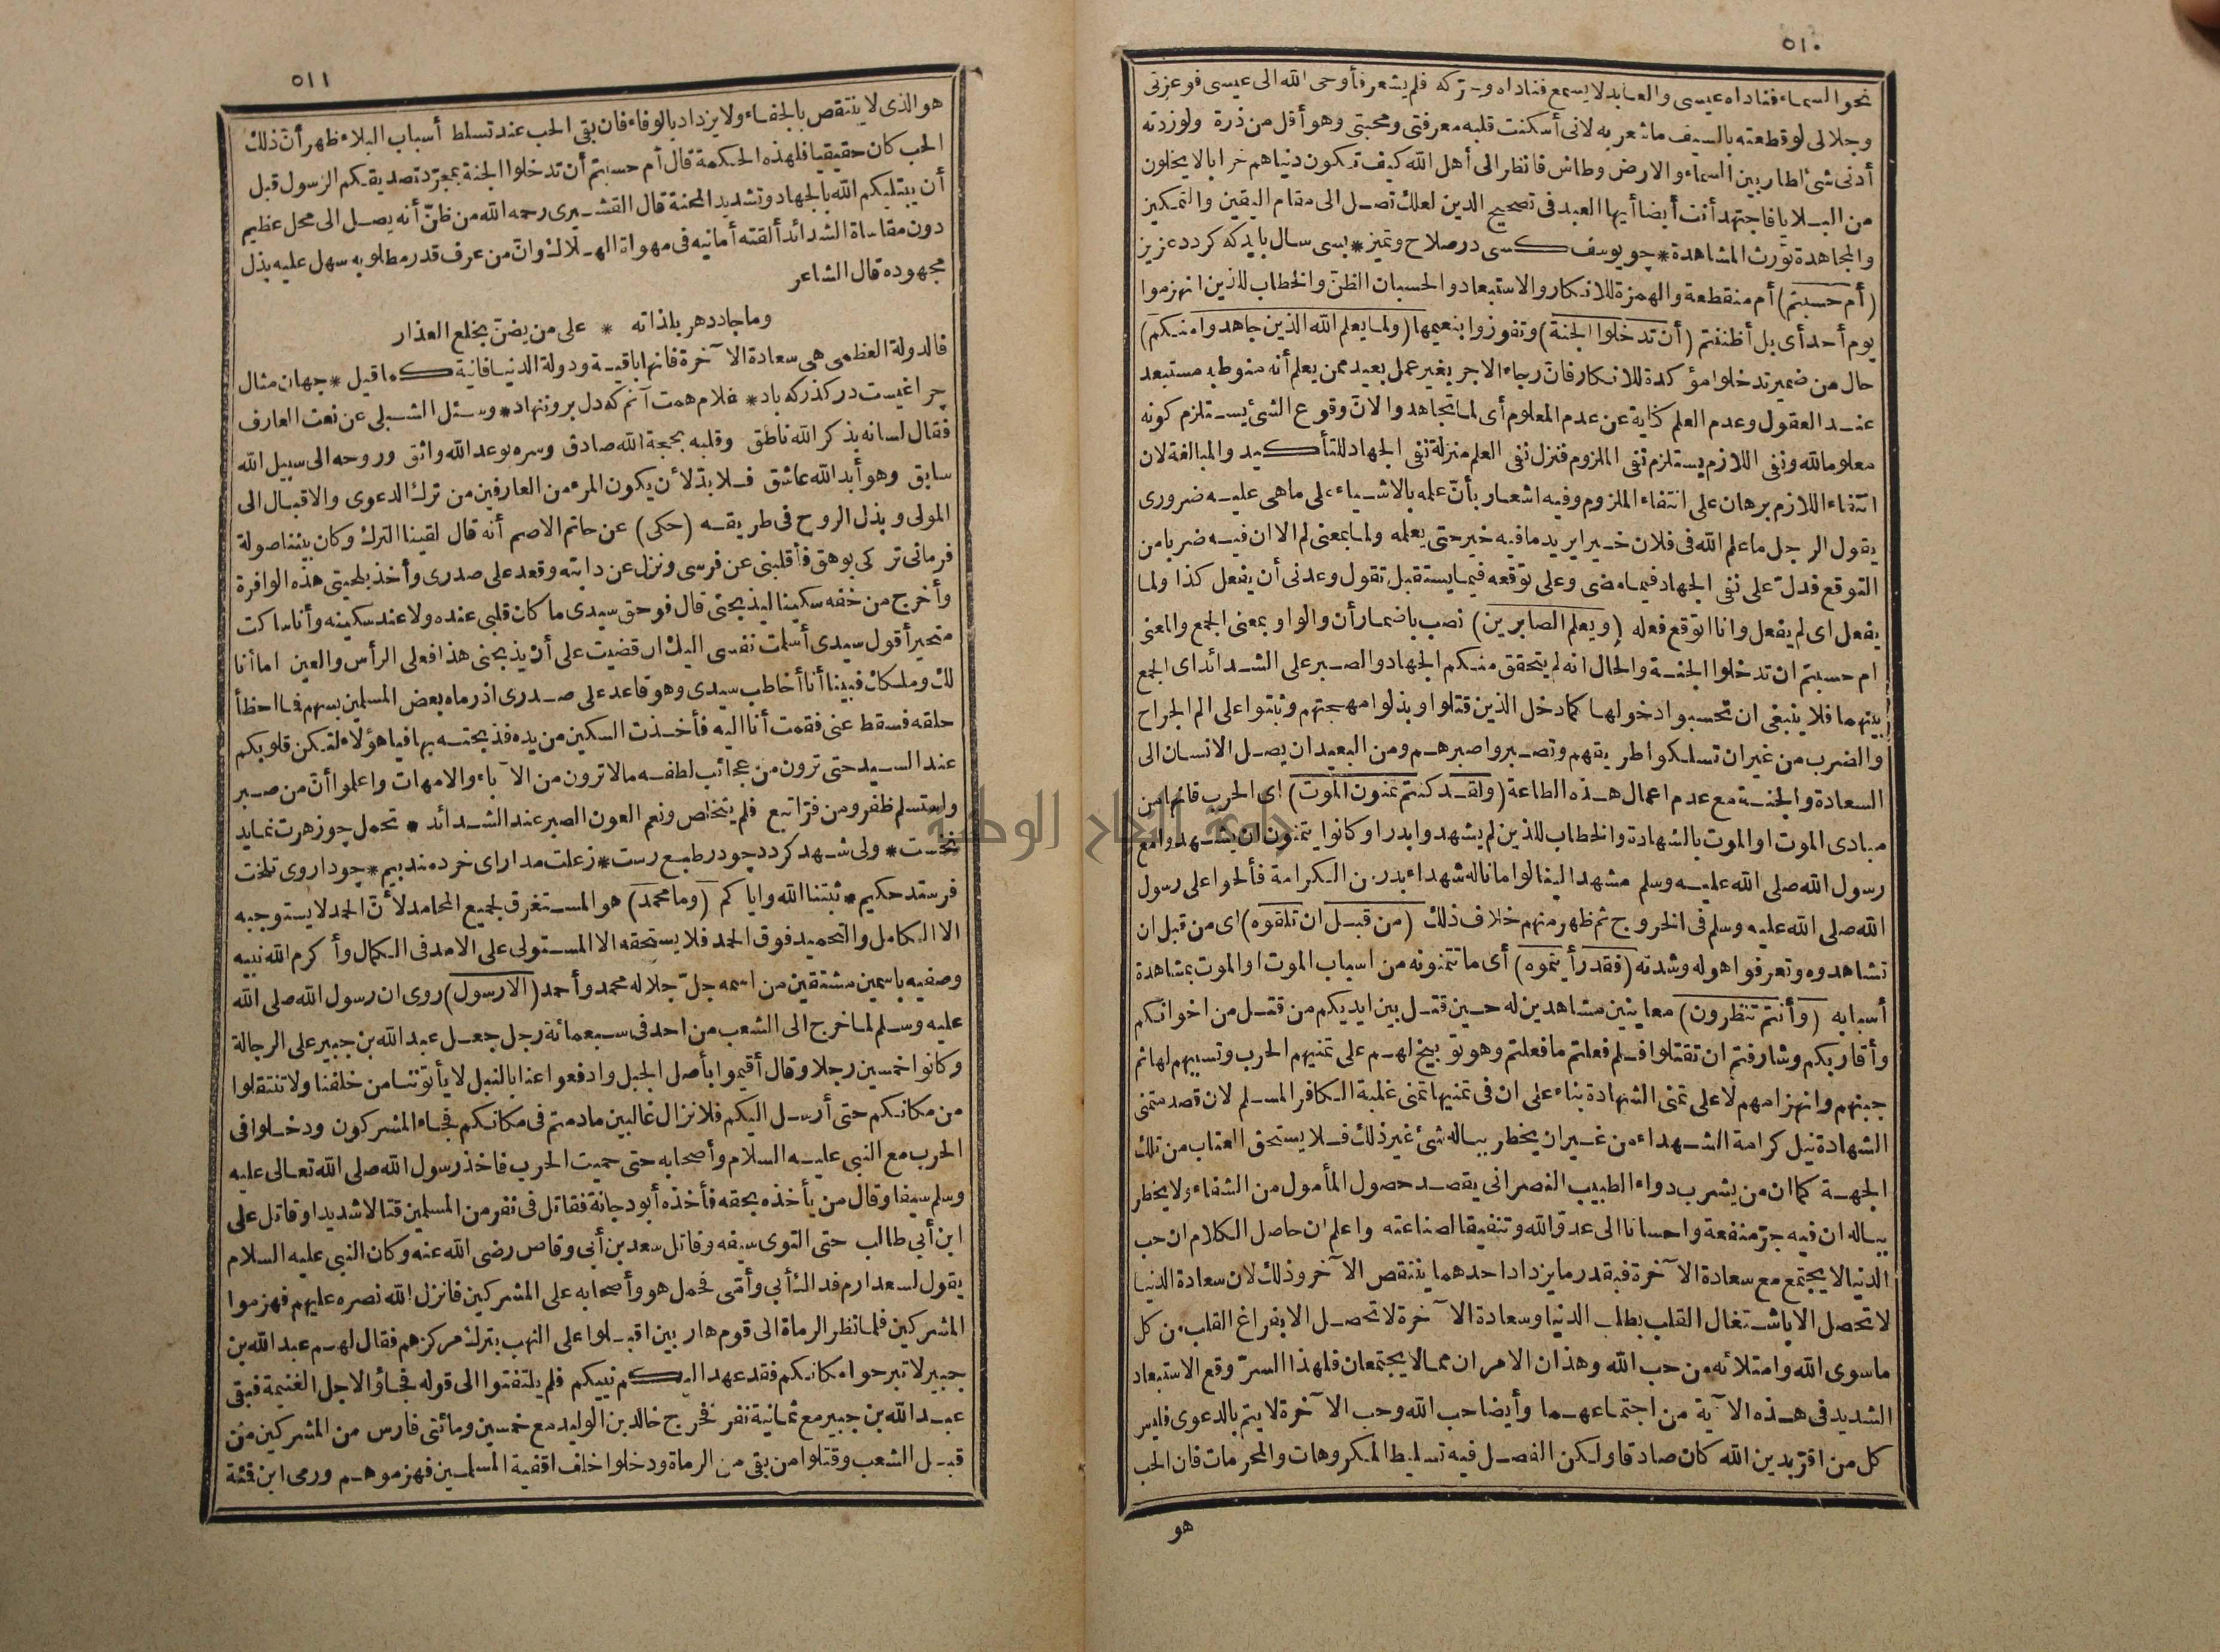 ٥١٠
نحو السماء فناداه عيسى والعابد لا يسمع فناداه وتركه فلم يشعر فأوحى الله الى عيسى فوعزتى
وجلالى لو قطعته بالسيف ما شعر به لانى أسكنت قلبه معرفتى ومحبتى وهو أقل من ذرة ولو زدته
أدنى شئ لطار بين السماء والارض وطاش فانظر الى أهل الله كيف تكون دنياهم خرابا لا يخلون
من البلايا فاجتهد أنت أيضا أيها العبد فى تصحيح الدين لعلك تصل الى مقام اليقين والتمكين
والمجاهدة تورث المشاهدة * چو يوسف كسى در صلاح وتميز * بسى سال بايد كه كردد عزيز
(أم حسبتم) أم منقطعة والهمزة للانكار والاستبعاد والحسبان الظنّ والخطاب للذين انهزموا
يوم أحد أى بل أظننتم (أن تدخلوا الجنة) وتفوزوا بنعيمها (ولما يعلم الله الذين جاهدوا منكم)
حال من ضمير تدخلوا مؤكدة للانكار فانّ رجاء الاجر بغير عمل بعيد ممن يعلم أنه منوط به مستبعد
عند العقول وعدم العلم كناية عن عدم المعلوم أى لما تجاهدوا لانّ وقوع الشئ يستلزم كونه
معلوما لله ونفى اللازم يستلزم نفى الملزوم فنزل نفى العلم منزلة نفى الجهاد للتأكيد والمبالغة لان
انتفاء اللازم برهان على انتفاء الملزوم وفيه اشعار بأنّ علمه بالاشياء على ما هى عليه ضرورى
يقول الرجل ما علم الله فى فلان خيرا يريد ما فيه خير حتى يعلمه ولما بمعنى لم الا ان فيه ضربا من
التوقع فدلّ على نفى الجهاد فيما مضى وعلى توقعه فيما يستقبل تقول وعدنى أن يفعل كذا ولما
يفعل اى لم يفعل وانا اتوقع فعله (ويعلم الصابرين) نصب باضمار أن والواو بمعنى الجمع والمعنى
ام حسبتم ان تدخلوا الجنة والحال انه لم يتحقق منكم الجهاد والصبر على الشدائد اى الجمع
بينهما فلا ينبغى ان تحسبوا دخولها كما دخل الذين قتلوا وبذلوا مهجتهم وثبتوا على الم الجراح
والضرب من غير ان تسلكوا طريقهم وتصبروا صبرهم ومن البعيد ان يصل الانسان الى
السعادة والجنة مع عدم اعمال هذه الطاعة (ولقد كنتم تمنون الموت) اى الحرب فانها من
مبادى الموت او الموت بالشهادة والخطاب للذين لم يشهدوا بدرا وكانوا يتمنون ان يشهدوا مع
رسول الله صلى الله عليه وسلم مشهدا لينالوا ما ناله شهداء بدر من الكرامة فألحوا على رسول
الله صلى الله عليه وسلم فى الخروج ثم ظهر منهم خلاف ذلك (من قبل ان تلقوه) اى من قبل ان
تشاهدوه وتعرفوا هوله وشدته (فقد رأيتموه) أى ما تتمنونه من اسباب الموت او الموت بمشاهدة
أسبابه (وأنتم تنظرون) معاينين مشاهدين له حين قتل بين ايديكم من قتل من اخوانكم
وأقاربكم وشارفتم ان تقتلوا فلم فعلتم ما فعلتم وهو توبيخ لهم على تمنيهم الحرب وتسببهم لها ثم
جبنهم وانهزامهم لا على تمنى الشهادة بناء على ان فى تمنيها تمنى غلبة الكافر المسلم لان قصد متمنى
الشهادة نيل كرامة الشهداء من غير ان يخطر بباله شئ غير ذلك فلا يستحق العتاب من تلك
الجهة كما ان من يشرب دواء الطبيب النصرانى يقصد حصول المأمول من الشفاء ولا يخطر
بباله ان فيه جرّ منفعة واحسانا الى عدوّ الله وتنفيقا لصناعته واعلم ان حاصل الكلام ان حب
الدنيا لا يجتمع مع سعادة الآخرة فبقدر ما يزداد احدهما ينتقص الآخر وذلك لان سعادة الدنيا
لا تحصل الا باشتغال القلب بطلب الدنيا وسعادة الآخرة لا تحصل الا بفراغ القلب من كل
ما سوى الله وامتلائه من حب الله وهذان الامران مما لا يجتمعان فلهذا السرّ وقع الاستبعاد
الشديد فى هذه الآية من اجتماعهما وأيضا حب الله وحب الآخرة لا يتم بالدعوى فليس
كل من اقرّ بدين الله كان صادقا ولكن الفصل فيه تسليط المكروهات والمحرمات فان الحب
هو
٥١١
هو الذى لا ينتقص بالجفاء ولا يزداد بالوفاء فان بقى الحب عند تسلط أسباب البلاء ظهر أنّ ذلك
الحب كان حقيقيا فلهذه الحكمة قال أم حسبتم أن تدخلوا الجنة بمجرّد تصديقكم الرسول قبل
أن يبتليكم الله بالجهاد وتشديد المحنة قال القشيرى رحمه الله من ظنّ أنه يصل الى محل عظيم
دون مقاساة الشدائد ألقته أمانيه فى مهواة الهلاك وانّ من عرف قدر مطلوبه سهل عليه بذل
مجهوده قال الشاعر
وما جاد دهر بلذاته * على من يضنّ بخلع العذار
فالدولة العظمى هى سعادة الآخرة فانها باقية ودولة الدنيا فانية كما قيل * جهان مثال
چراغيست در كذركه باد * غلام همت آنم كه دل برو ننهاد * وسئل الشبلى عن نعت العارف
فقال لسانه بذكر الله ناطق وقلبه بحجة الله صادق وسره بوعد الله واثق وروحه الى سبيل الله
سابق وهو أبدا لله عاشق فلا بدّ لأن يكون المرء من العارفين من ترك الدعوى والاقبال الى
المولى وبذل الروح فى طريقه (حكى) عن حاتم الاصم أنه قال لقينا الترك وكان بيننا صولة
فرمانى تركى بوهق فأقلبنى عن فرسى ونزل عن دابته وقعد على صدرى وأخذ بلحيتى هذه الوافرة
وأخرج من خفه سكينا ليذبحنى قال فوحق سيدى ما كان قلبى عنده ولا عند سكينه وأنا ساكت
متحير أقول سيدى أسلمت نفسى اليك ان قضيت على أن يذبحنى هذا فعلى الرأس والعين اما أنا
لك وملكك فبينا أنا أخاطب سيدى وهو قاعد على صدرى اذ رماه بعض المسلمين بسهم فما اخطأ
حلقه فسقط عنى فقمت أنا اليه فأخذت السكين من يده فذبحته بها فيا هؤلاء لتكن قلوبكم
عند السيد حتى ترون من عجائب لطفه ما لا ترون من الآباء والامهات واعلموا أن من صبر
واستسلم ظفر ومن فرّ اتبع فلم يتخلص ونعم العون الصبر عند الشدائد * تحمل چو زهرت نمايد
نخست * ولى شهد كردد چو در طبع رست * زعلت مدار اى خردمند بيم * چو داروى تلخت
فرستد حكيم * ثبتنا الله واياكم (وما محمد) هو المستغرق لجميع المحامد لأنّ الحمد لا يستوجبه
الا الكامل والتحميد فوق الحمد فلا يستحقه الا المستولى على الامد فى الكمال وأكرم الله نبيه
وصفيه باسمين مشتقين من اسمه جلّ جلاله محمد وأحمد (الا رسول) روى ان رسول الله صلى الله
عليه وسلم لما خرج الى الشعب من احد فى سبعمائة رجل جعل عبد الله بن جبير على الرجالة
وكانوا خمسين رجلا وقال أقيموا بأصل الجبل وادفعوا عنا بالنبل لا يأتوننا من خلفنا ولا تنتقلوا
من مكانكم حتى أرسل اليكم فلا نزال غالبين ما دمتم فى مكانكم فجاء المشركون ودخلوا فى
الحرب مع النبى عليه السلام وأصحابه حتى حميت الحرب فاخذ رسول الله صلى الله تعالى عليه
وسلم سيفا وقال من يأخذه بحقه فأخذه أبو دجانة فقاتل فى نفر من المسلمين قتالا شديدا وقاتل على
ابن أبى طالب حتى التوى سيفه وقاتل سعد بن أبى وقاص رضى الله عنه وكان النبى عليه السلام
يقول لسعد ارم فداك أبى وأمى فحمل هو وأصحابه على المشركين فانزل الله نصره عليهم فهزموا
المشركين فلما نظر الرماة الى قوم هاربين اقبلوا على النهب بترك مركزهم فقال لهم عبد الله بن
جبير لا تبرحوا مكانكم فقد عهد اليكم نبيكم فلم يلتفتوا الى قوله فجاؤا لاجل الغنيمة فبقى
عبد الله بن جبير مع ثمانية نفر فخرج خالد بن الوليد مع خمسين ومائتى فارس من المشركين من
قبل الشعب وقتلوا من بقى من الرماة ودخلوا خلف اقفية المسلمين فهزموهم ورمى ابن قمئة
جامعة النجاح الوطنية